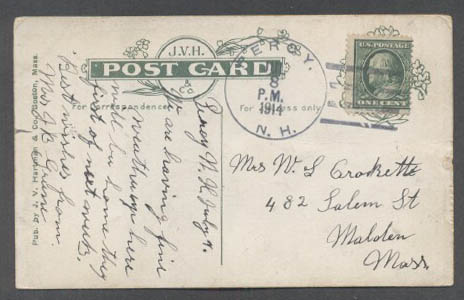 J.V.H.
& Co.
POST CARD
For Correspondence
For Address only
Pub. by J. V. Harriman & Co., Boston, Mass.
ERCY.
8
P.M.
1914
N. H.
U.S. POSTAGE
ONE CENT
Percy N. H. July 9.
We are having fine
weather up here
will be home they
first of next week.
Best wishes from
Mrs J B Crane
Mrs W. L Crockette
482 Salem St
Malden
Mass.